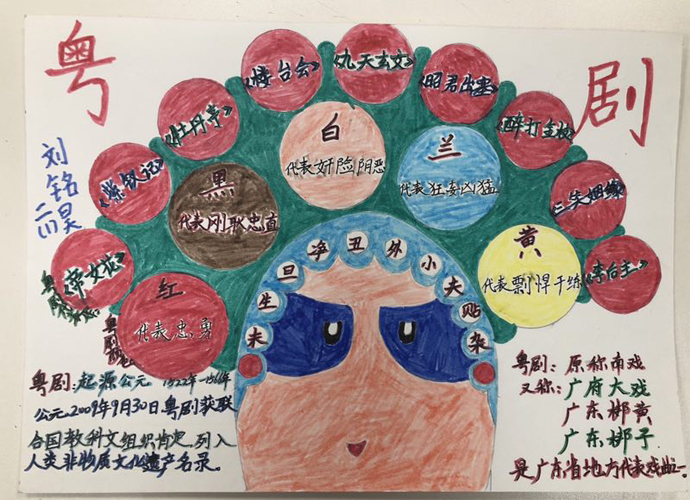 粤
剧
刘铭昊
二(1)
《帝女花》
《紫钗记》
《牡丹亭》
《楼台会》
《九天玄女》
《昭君出塞》
《醉打金枝》
三笑姻缘》
《李后主》
红
代表忠勇
黑
代表刚耿忠直
白
代表奸险阴恶
兰
代表狂妄凶猛
黄
代表剽悍干练
末生旦净丑外小夫贴杂
粤剧
粤剧
粤剧:起源公元 1522年-1566年
公元2009年9月30日粤剧获联
合国教科文组织肯定,列入
人类非物质文化遗产名录.
粤剧:原称南戏
又称:广府大戏
广东梆黄
广东梆子
是广东省地方代表戏曲